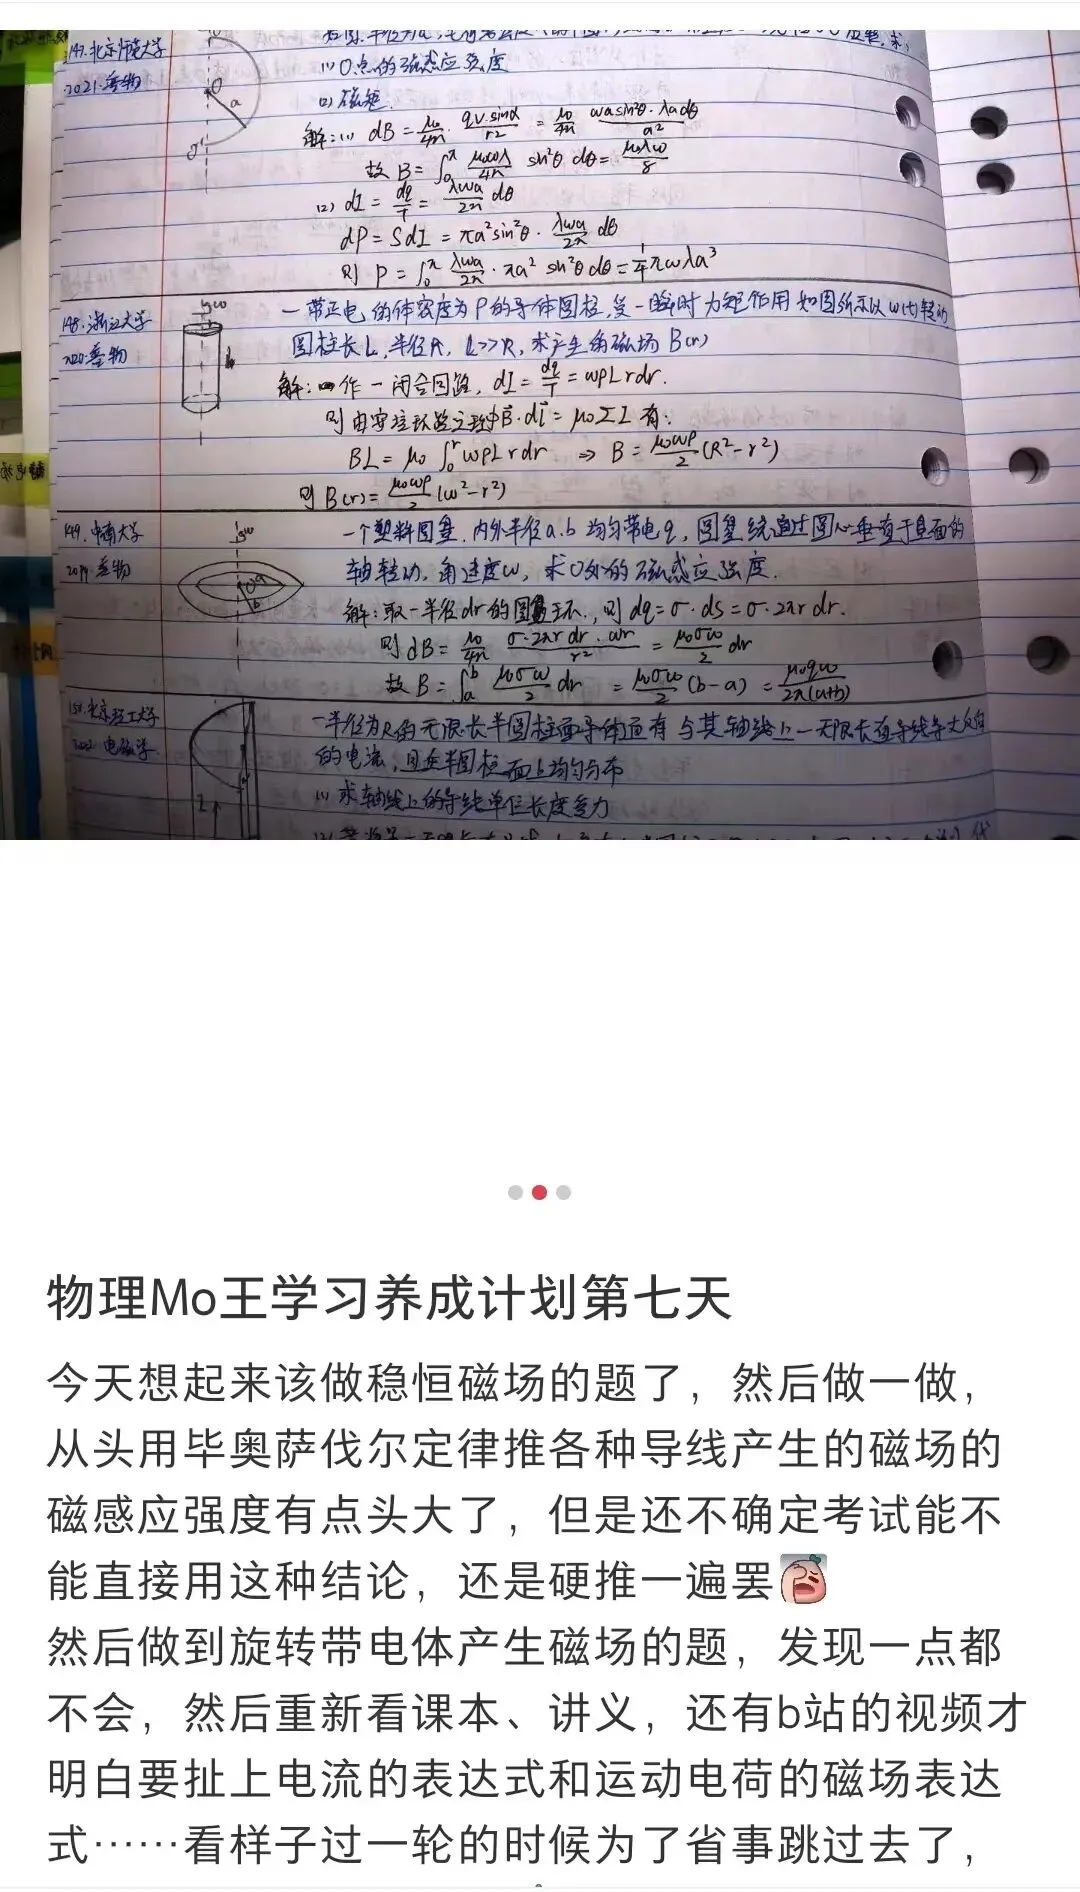 147.北京师范大学
2021.普物
(1) O点的磁感应强度
(2) 磁矩.
解:(1) dB = μ₀/4π · qv·sinα/r² = μ₀/4π ωasin²θ·λadθ/a²
故 B = ∫₀^π μ₀ωλ/4π sin²θ dθ = μ₀λω/8
(2) dI = dq/T = λωa/2π dθ
dP = SdI = πa²sin²θ · λωa/2π dθ
则 P = ∫₀^π λωa/2π · πa² sin²θ dθ = 1/4 πωλa³
148.浙江大学
一带正电的体密度为ρ的导体圆柱,受一瞬时力矩作用如图所示以ω(t)转动
普物
圆柱长L,半径R, L>>R, 求产生的磁场 B(r)
解: 作一闭合回路, dI = dq/T = ωρLrdr.
则由安培环路定理∮B·dl = μ₀ΣI 有:
BL = μ₀ ∫₀^r ωρLrdr ⇒ B = μ₀ωρ/2 (R²-r²)
则 B(r) = μ₀ωρ/2 (ω²-r²)
149.中南大学
一个塑料圆盘.内外半径a.b均匀带电q, 圆盘绕通过圆心垂直于盘面的
2019.普物
轴转动,角速度ω,求O处的磁感应强度.
解:取一半径dr的圆环.,则 dq = σ·ds = σ·2πrdr.
则 dB = μ₀/4π σ·2πrdr·ωr/r² = μ₀σω/2 dr
故 B = ∫ₐ^b μ₀σω/2 dr = μ₀σω/2 (b-a) = μ₀qω/2π(a+b)
150.北京理工大学
一半径为R的无限长半圆柱面导体通有与其轴线上一无限长直导线等大反向
电磁学
的电流,且在半圆柱面上均匀分布
(1) 求轴线上的导线单位长度受力
物理Mo王学习养成计划第七天
今天想起来该做稳恒磁场的题了，然后做一做，
从头用毕奥萨伐尔定律推各种导线产生的磁场的
磁感应强度有点头大了，但是还不确定考试能不
能直接用这种结论，还是硬推一遍罢
然后做到旋转带电体产生磁场的题，发现一点都
不会，然后重新看课本、讲义，还有b站的视频才
明白要扯上电流的表达式和运动电荷的磁场表达
式……看样子过一轮的时候为了省事跳过去了，